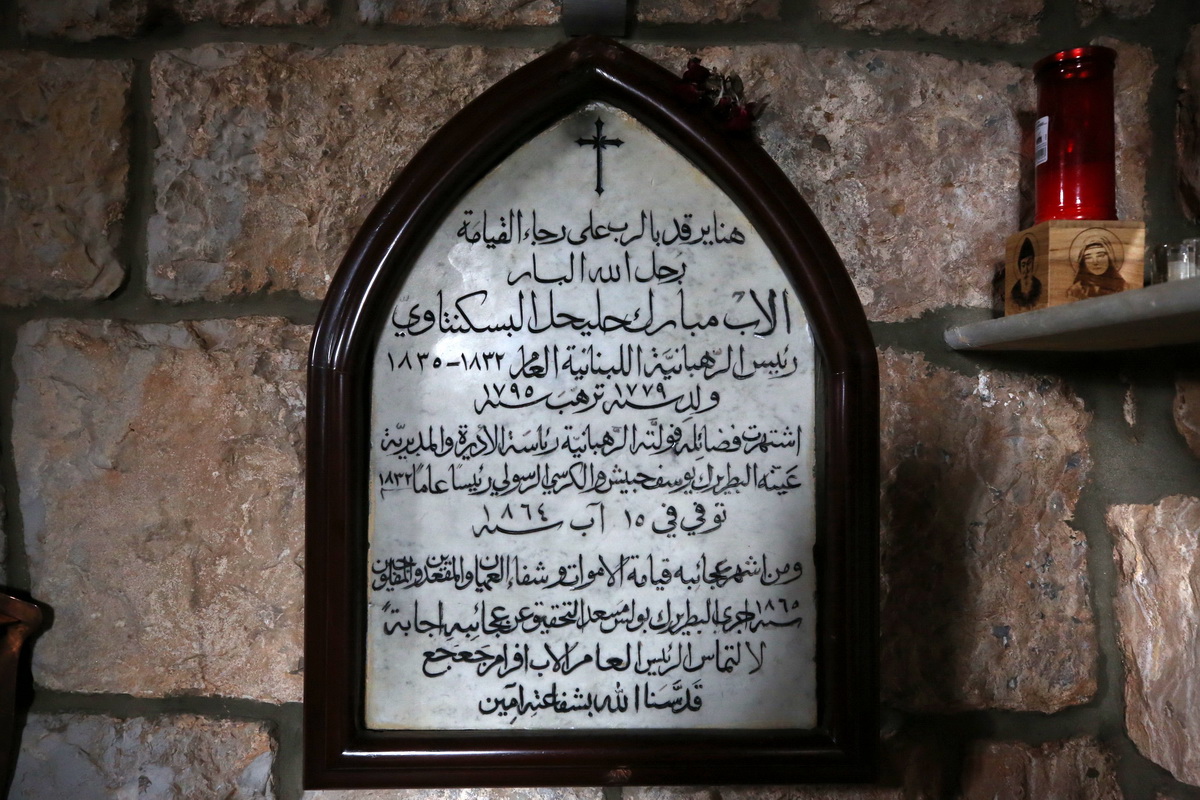 هنا يرقد بالرب على رجاء القيامة
رجل الله البار
الاب مبارك حليحل البسكنتاويّ
رئيس الرّهبانيّة اللبنانية العام ١٨٣٢-١٨٣٥
ولد سنة ١٧٧٩ ترهب سنة ١٧٩٥
اشتهرت فضائله فولّته الرهبانية رئاسة الاديرة والمديريّة
عيّنه البطريرك يوسف حبيش والكرسي الرسولي رئيساً عاماً ١٨٣٢
توفي في ١٥ آب سنة ١٨٦٤
ومن اشهر عجائبه قيامة الاموات وشفاء العميان والمقعدين والمفلوجين
سنة ١٨٦٥ اجرى البطريرك بولس مسعد التحقيق عن عجائبه اجابةً
لالتماس الرئيس العام الاب افرام جعجع
قدّسنا الله بشفاعته آمين